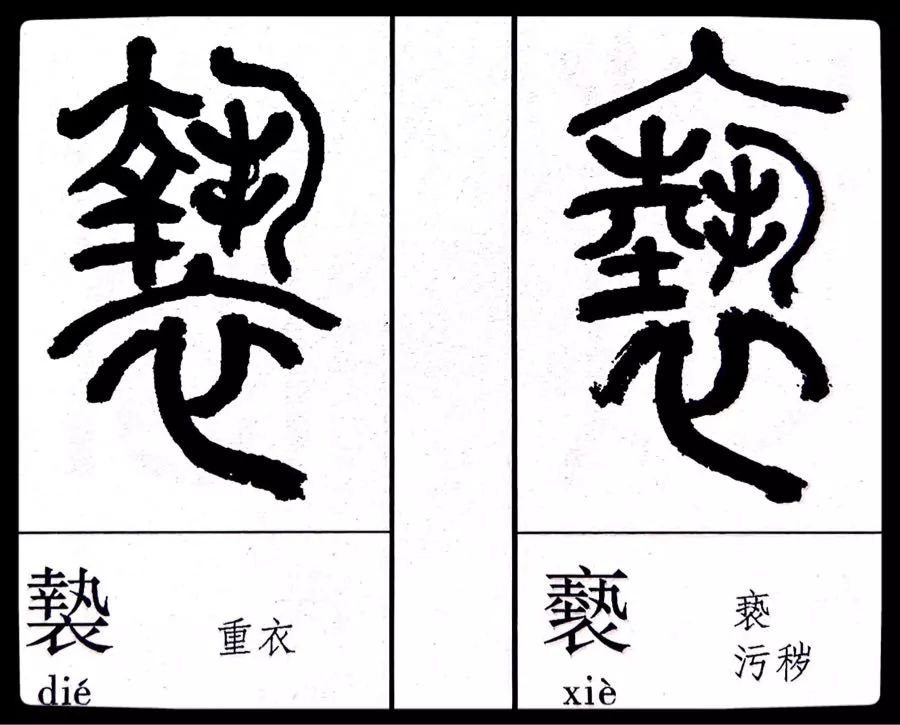 褺
褺 重衣
dié
褻
褻 亵
污秽
xiè